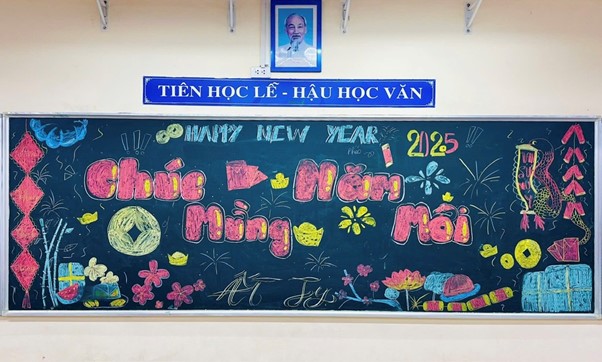 TIÊN HỌC LỄ - HẬU HỌC VĂN
HAPPY NEW YEAR 2025
Chúc Năm
Mừng Mới
ẤT TỴ